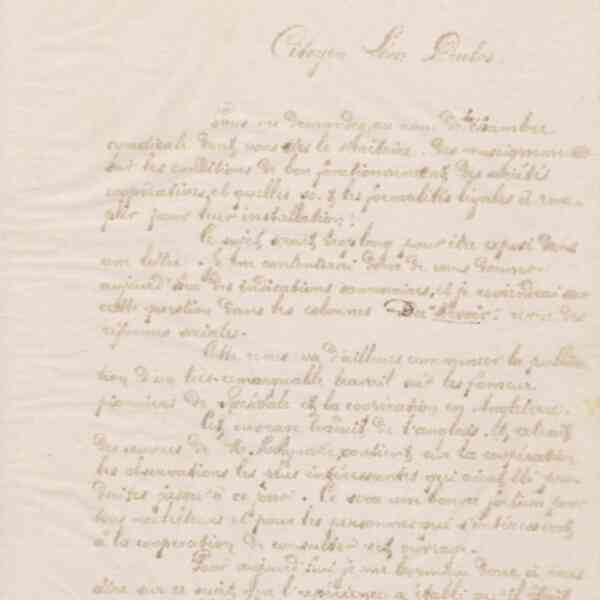 Citoyen Léon
Vous me demandez, au nom de la chambre
syndicale dont vous êtes le secrétaire, des renseignements
sur les conditions de bon fonctionnement des sociétés
coopératives, et quelles sont les formalités légales à rem-
plir pour leur installation.
Ce sujet serait trop long pour être exposé dans
une lettre. Je me contenterai donc de vous donner
aujourd'hui des indications sommaires, et je reviendrai sur
cette question dans les colonnes Du "Devoir" revue des
réformes sociales.
Cette revue va d'ailleurs commencer la publica-
tion d'un très remarquable travail sur les fameux
pionniers de Rochdale et la coopération en Angleterre.
Cet ouvrage traduit de l'anglais et extrait
des œuvres de M. Holyoake contient sur la coopération
les observations les plus intéressantes qui aient été pro-
duites jusqu'à ce jour. Ce sera une bonne fortune pour
tous nos lecteurs et pour les personnes qui s'intéressent
à la coopération de consulter cet ouvrage.
Pour aujourd'hui je me bornerai donc à vous
dire sur ce sujet que l'expérience a établi qu'il était